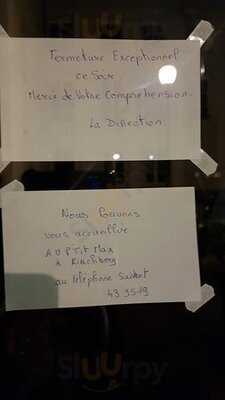 Fermeture Exceptionnel
ce Soir
Merci de Votre Compréhension.
La Direction
Nous Pouvons
vous accueillir
AU P'Tit Max
à Kirchberg
au téléphone Suivant
43 35 19
Sluurpy